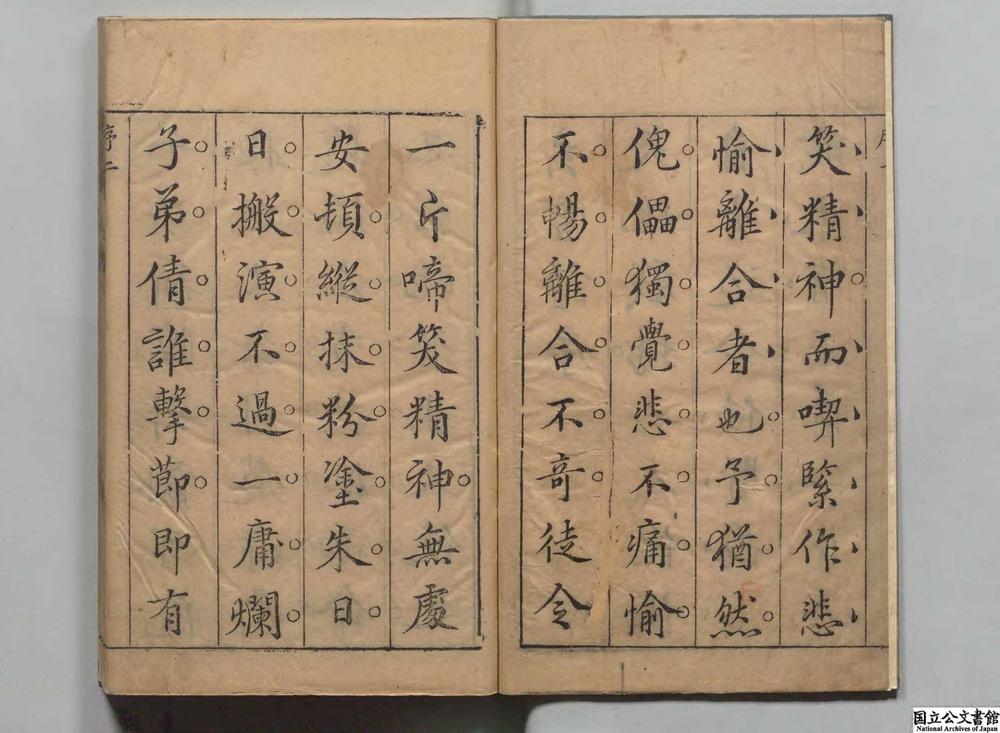 笑精神而喫緊作悲
愉離合者也予猶然
傀儡獨覺悲不痛愉
不暢離合不奇徒令
一片啼笑精神無處
安頓縱抹粉塗朱日
日搬演不過一庸爛
子弟倩誰擊節即有
序二
国立公文書館
National Archives of Japan